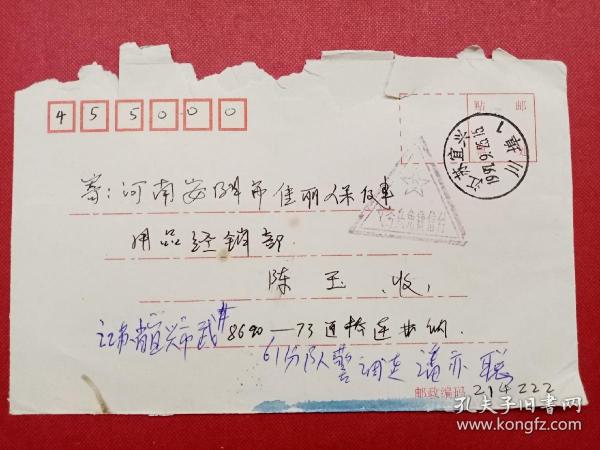 455000
贴 邮
江苏宜兴
1991.9.25.15
1
寄:河南安阳市佳丽保健
用品经销部
陈玉 收
江苏省宜兴市武#8690—73通
61分队警调连潘亦聪
邮政编码 214222
孔夫子旧书网
www.kongfz.com